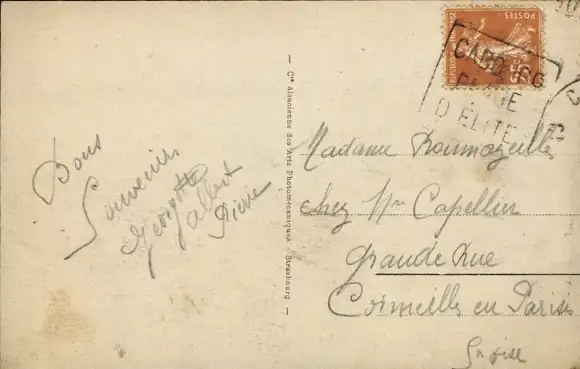 Bons
Souvenirs
Georgette
Albert
Pierre
— Cie Alsacienne des Arts Photomécaniques, Strasbourg —
POSTES
CABOURG
PLAGE
D'ÉLITE
Madame
chez Mr Capellier
Grande Rue
Cormeilles en Parisis
S et Oise